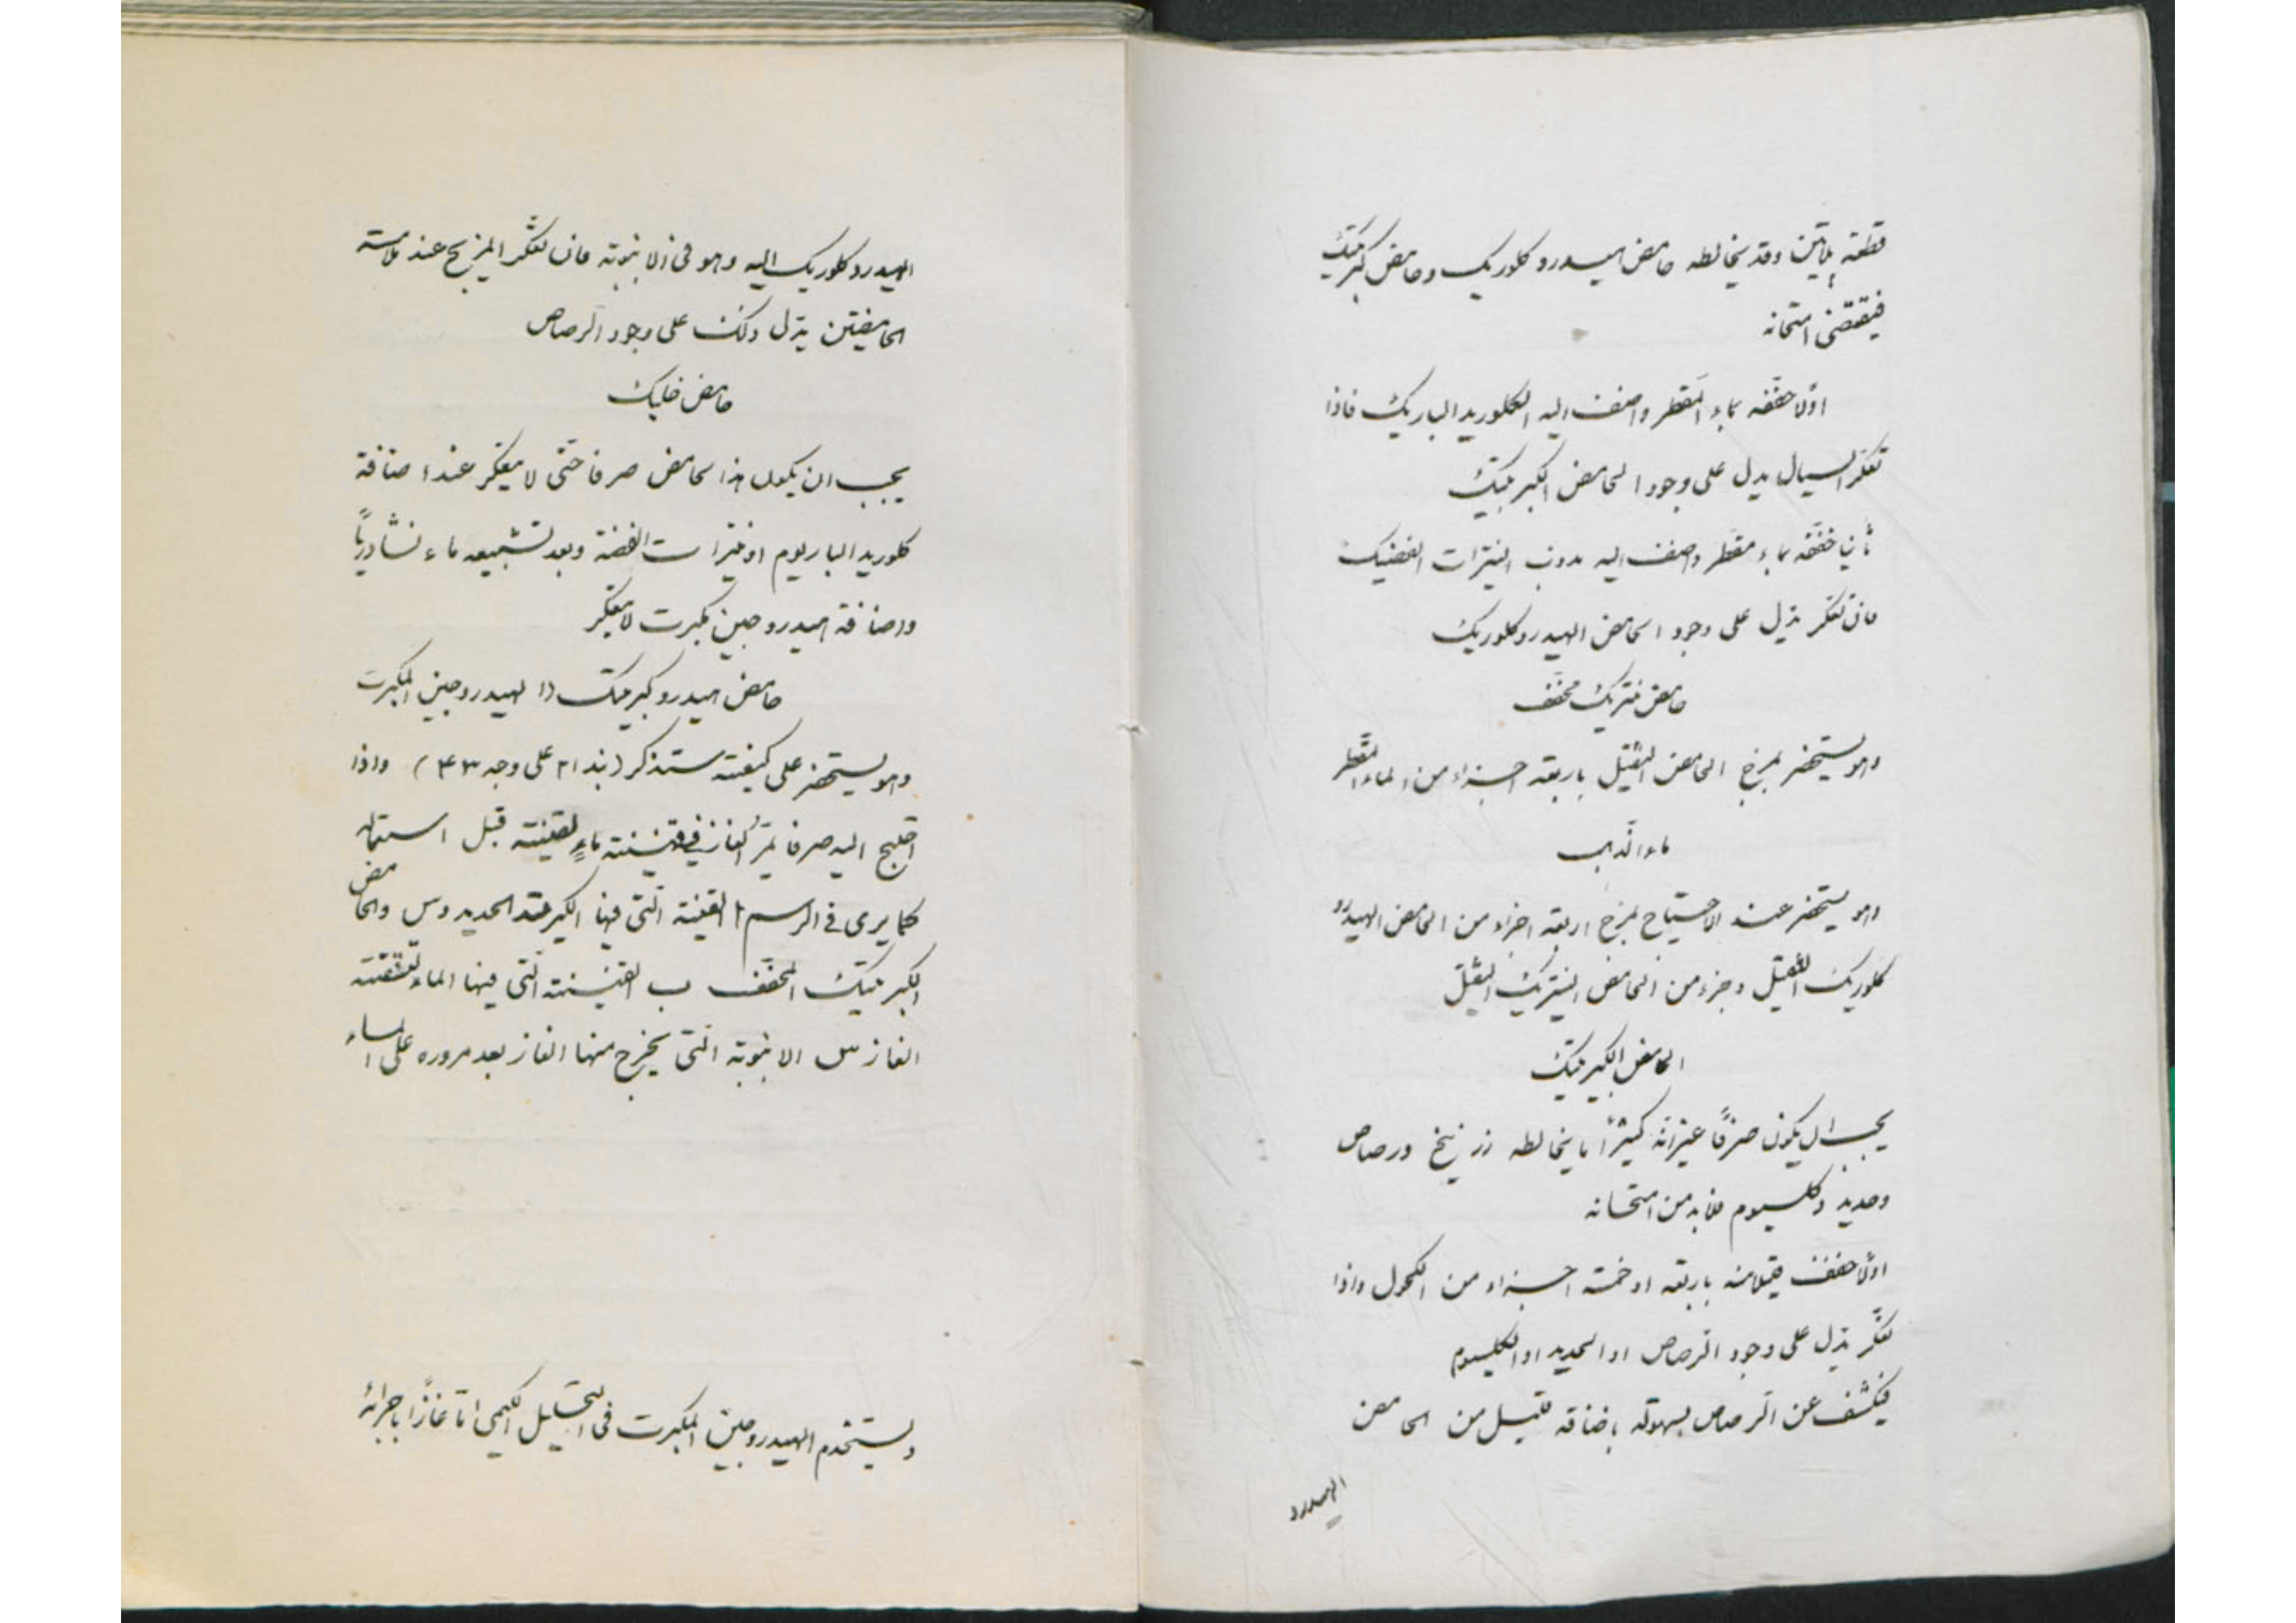 قطعة پلاتين وقد يخالطه حامض هيدروكلوريك وحامض كبريتيك
فيقتضى امتحانه
اولا خففه بماء المقطر واضف اليه الكلوريد الباريك فاذا
تعكر السيال يدل على وجود الحامض الكبريتيك
ثانيا خففه بماء مقطر واضف اليه مذوب النيترات الفضيك
فان تعكر يدل على وجود الحامض الهيدروكلوريك
حامض نتريك مخفف
وهو يستحضر بمزج الحامض الثقيل باربعة اجزاء من الماء المقطر
ماء الذهب
وهو يستحضر عند الاحتياج بمزج اربعة اجزاء من الحامض الهيدرو
كلوريك الثقيل وجزء من الحامض النيتريك الثقيل
الحامض الكبريتيك
يجب ان يكون صرفًا غير انه كثيرًا ما يخالطه زرنيخ ورصاص
وحديد وكلسيوم فلابد من امتحانه
اولًا خفف قليلا منه باربعة او خمسة اجزاء من الكحول واذا
تعكر يدل على وجود الرصاص او الحديد او الكلسيوم
فيكشف عن الرصاص بسهولة باضافة قليل من الحامض
الهيدرو
الهيدروكلوريك اليه وهو فى الانبوبة فان تعكر المزيج عند ملامسة
الحامضين يدل ذلك على وجود الرصاص
حامض خليك
يجب ان يكون هذا الحامض صرفا حتى لا يتعكر عند اضافة
كلوريد الباريوم او نيترات الفضة وبعد تشبيعه ماء نشادريًا
واضافة هيدروجين مكبرت لا يتعكر
حامض هيدروكبريتيك (الهيدروجين المكبرت
وهو يستحضر على كيفية ستذكر (بند ٢١ على وجه ٤٣) واذا
احتيج اليه صرفا يمر الغاز في قنينة ماء لتنقيته قبل استعماله
كما يرى فى الرسم ا القنينة التى فيها الكبريتيد الحديدوس والحامض
الكبريتيك المخفف ب القنينة التى فيها الماء لتنقية
الغاز س الانبوبة التى يخرج منها الغاز بعد مروره على الماء
ويستخدم الهيدروجين المكبرت فى التحليل الكيمي اما غازًا باجرائه